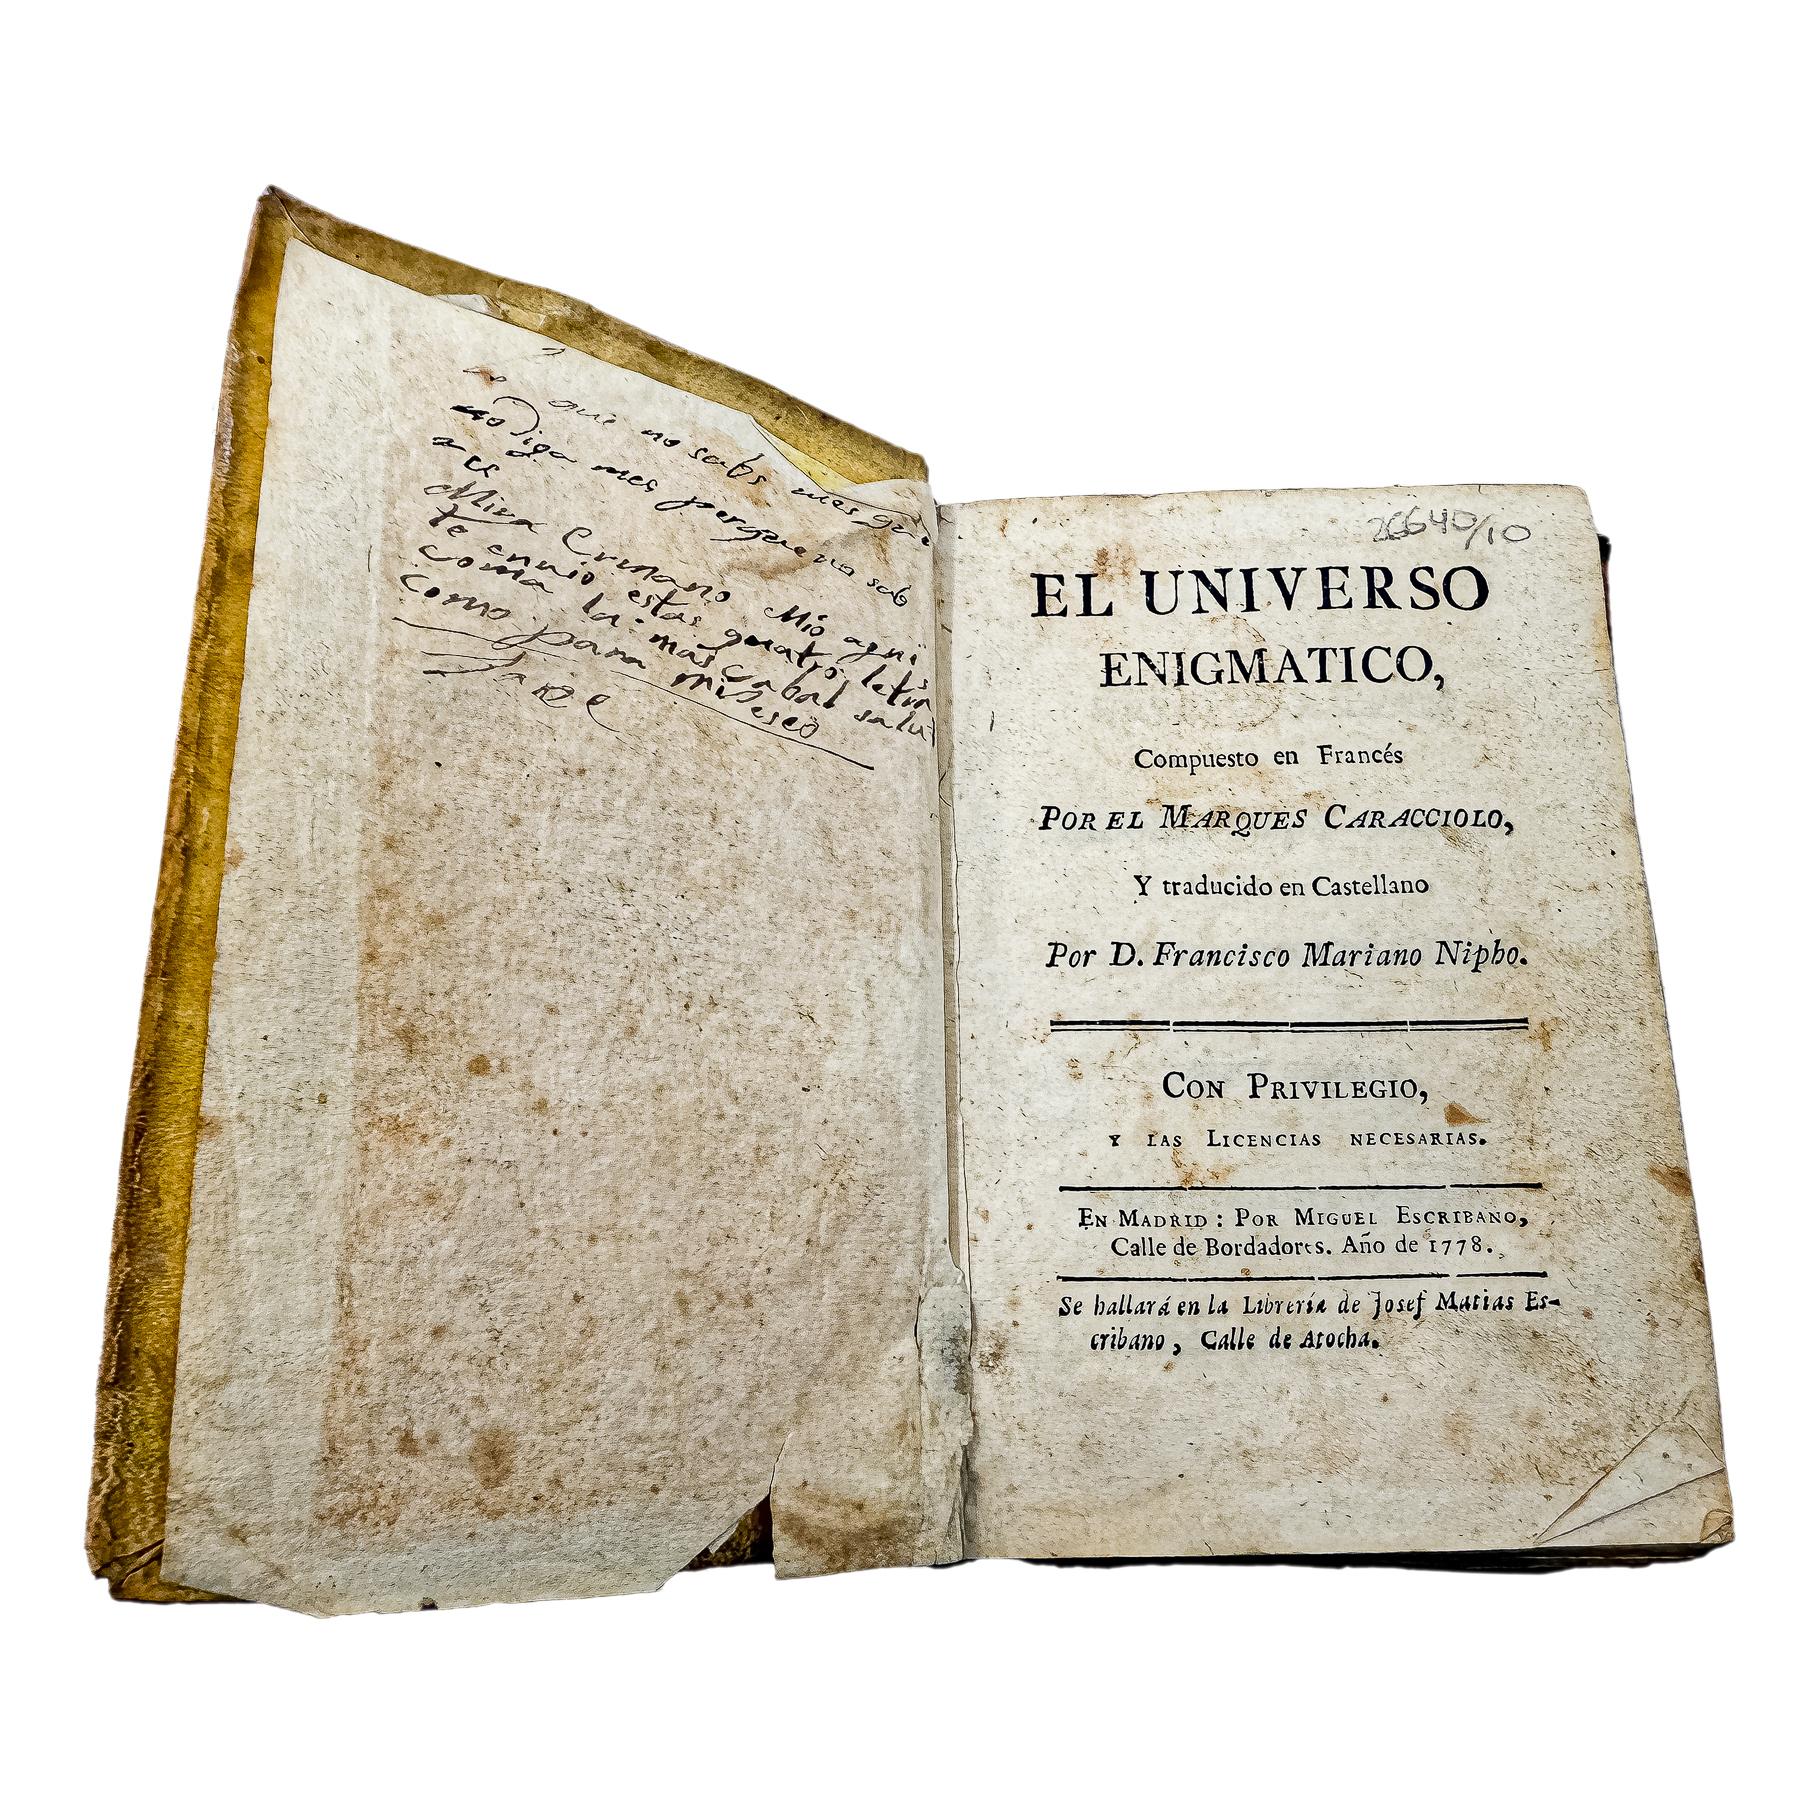 que no sabs mes que
no Diga mes perque no sab
Mira Ermano Mio aqui
te envio estas quatro letras
coma la mas cabal salu
como para mi deseo
26640/10
EL UNIVERSO
ENIGMATICO,
Compuesto en Francés
POR EL MARQUES CARACCIOLO,
Y traducido en Castellano
Por D. Francisco Mariano Nipho.
CON PRIVILEGIO,
Y LAS LICENCIAS NECESARIAS.
EN MADRID : POR MIGUEL ESCRIBANO,
Calle de Bordadores. Año de 1778.
Se hallará en la Librería de Josef Matias Es-
cribano, Calle de Atocha.